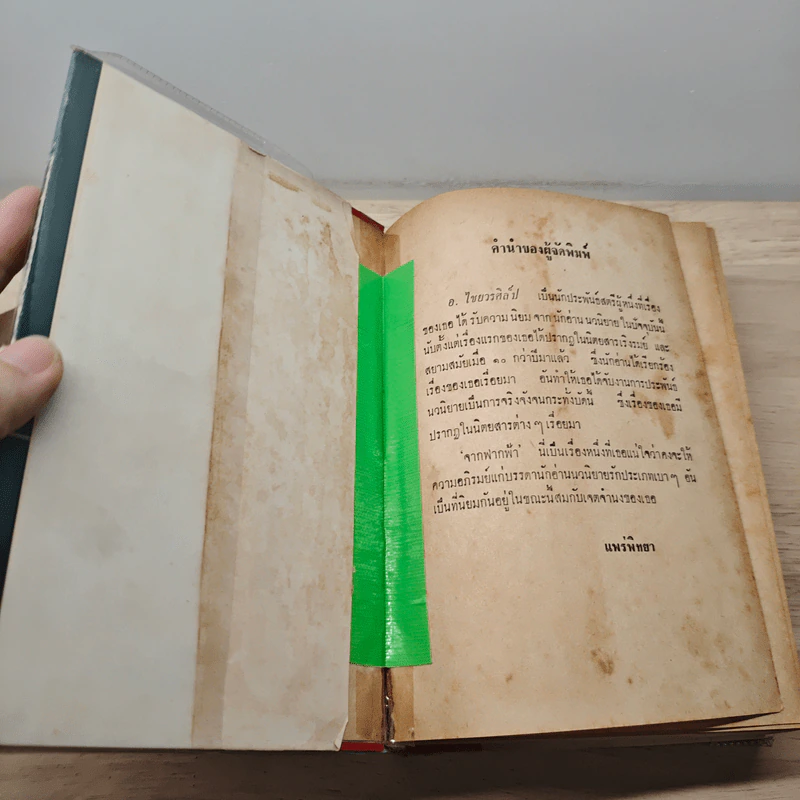 คำนำของผู้จัดพิมพ์
อ. ไชยวรศิลป์ เป็นนักประพันธ์สตรีผู้หนึ่งที่เรื่อง
ของเธอ ได้ รับความ นิยม จาก นักอ่าน นวนิยาย ในปัจจุบันนี้
นับตั้งแต่เรื่องแรกของเธอได้ปรากฏในนิตยสารเริงรมย์ และ
สยามสมัยเมื่อ ๑๐ กว่าปีมาแล้ว ซึ่งนักอ่านได้เรียกร้อง
เรื่องของเธอเรื่อยมา อันทำให้เธอได้จับงานการประพันธ์
นวนิยายเป็นการจริงจังจนกระทั่งบัดนี้ ซึ่งเรื่องของเธอมี
ปรากฏในนิตยสารต่าง ๆ เรื่อยมา
'จากฟากฟ้า' นี่เป็นเรื่องหนึ่งที่เธอแน่ใจว่าคงจะให้
ความอภิรมย์แก่บรรดานักอ่านนวนิยายรักประเภทเบา ๆ อัน
เป็นที่นิยมกันอยู่ในขณะนี้สมกับเจตจำนงของเธอ
แพร่พิทยา